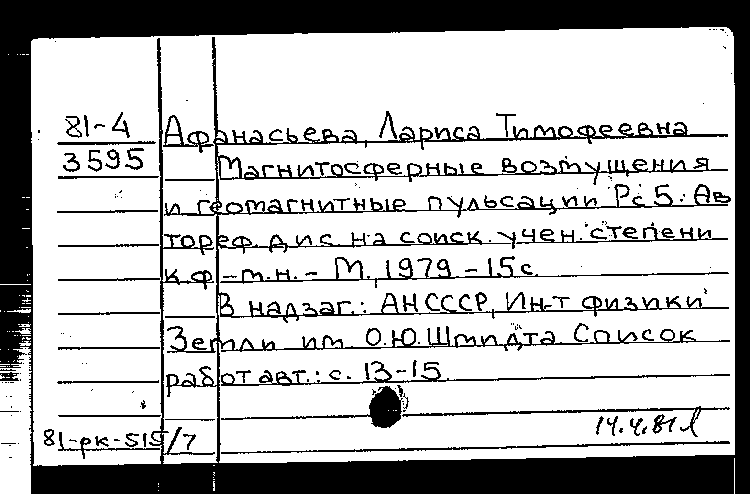 81-4 Афанасьева, Лариса Тимофеевна
3595 Магнитосферные возмущения
и геомагнитные пульсации Рс 5: Ав
тореф. дис. на соиск. учен. степени
к.ф.-м.н. - М., 1979 - 15 с.
В надзаг.: АН СССР, Ин-т физики
Земли им. О.Ю.Шмидта Список
работ авт.: с. 13-15
81-рк-515/7 14.4.81